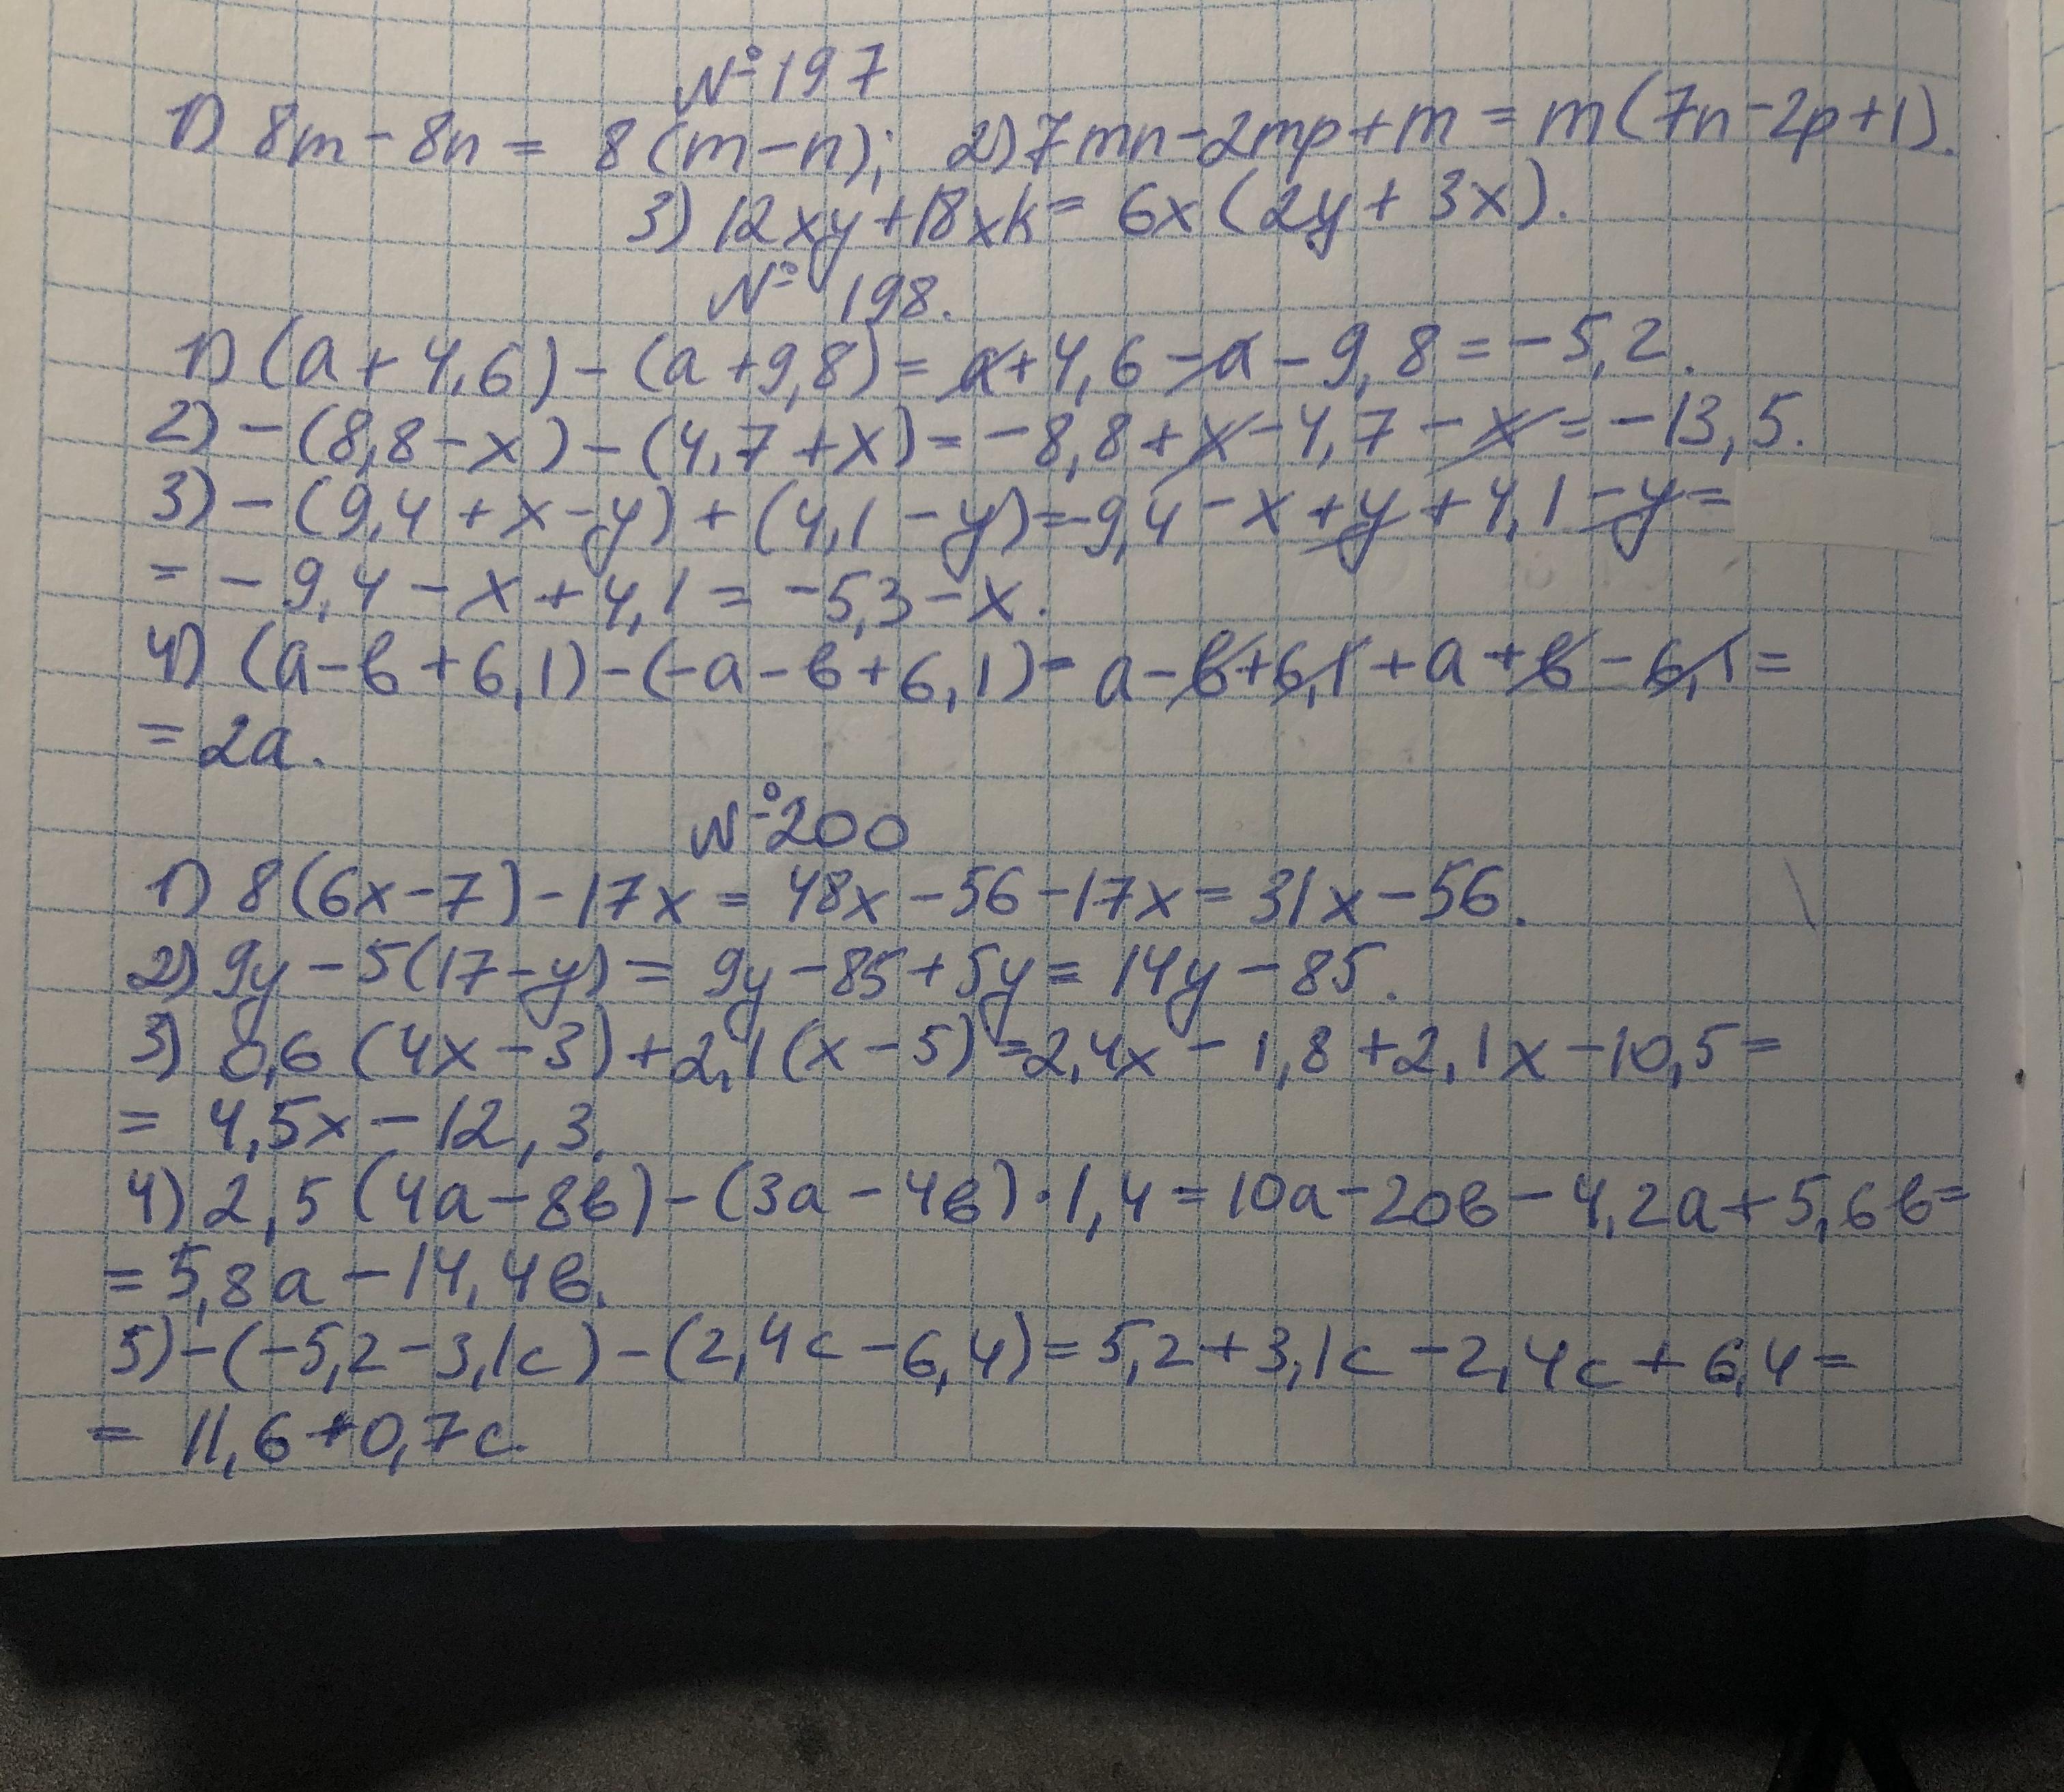 № 197
1) 8m - 8n = 8 (m - n); 2) 7mn - 2mp + m = m (7n - 2p + 1).
3) 12xy + 18xk = 6x (2y + 3x).
№ 198.
1) (a + 4,6) - (a + 9,8) = a + 4,6 - a - 9,8 = -5,2.
2) - (8,8 - x) - (4,7 + x) = -8,8 + x - 4,7 - x = -13,5.
3) - (9,4 + x - y) + (4,1 - y) = -9,4 - x + y + 4,1 - y =
= -9,4 - x + 4,1 = -5,3 - x.
4) (a - в + 6,1) - (-a - в + 6,1) = a - в + 6,1 + a + в - 6,1 =
= 2a.
№ 200
1) 8 (6x - 7) - 17x = 48x - 56 - 17x = 31x - 56.
2) 9y - 5 (17 - y) = 9y - 85 + 5y = 14y - 85.
3) 0,6 (4x - 3) + 2,1 (x - 5) = 2,4x - 1,8 + 2,1x - 10,5 =
= 4,5x - 12,3.
4) 2,5 (4a - 8в) - (3a - 4в) · 1,4 = 10a - 20в - 4,2a + 5,6в =
= 5,8a - 14,4в.
5) - (-5,2 - 3,1c) - (2,4c - 6,4) = 5,2 + 3,1c - 2,4c + 6,4 =
= 11,6 + 0,7c.